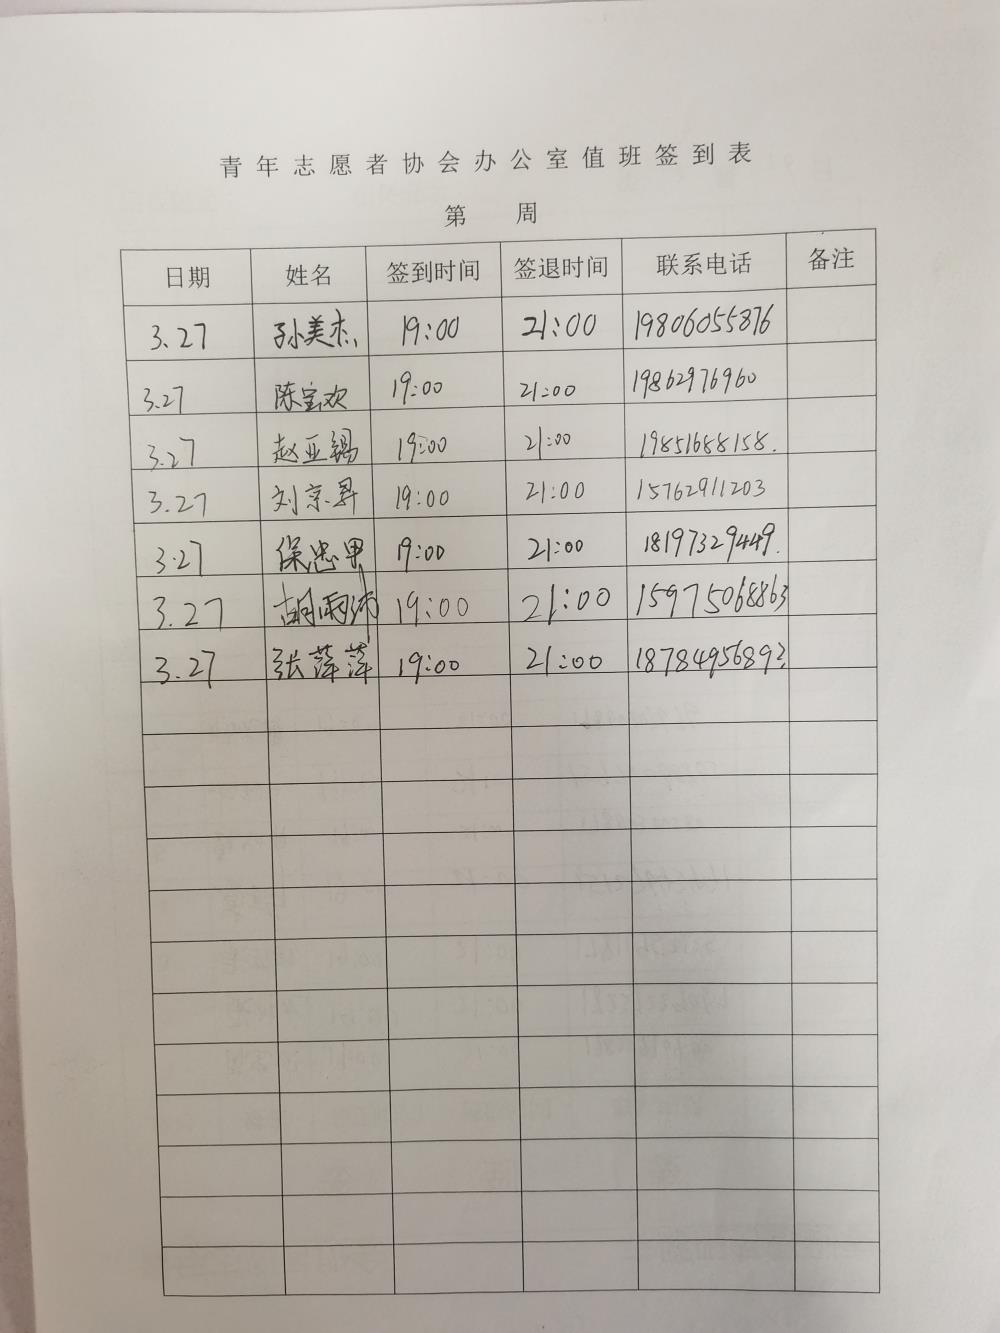 青年志愿者协会办公室值班签到表
第 周
日期 姓名 签到时间 签退时间 联系电话 备注
3.27 孙美杰 19:00 21:00 19806055876
3.27 陈宝欢 19:00 21:00 19862976960
3.27 赵亚锡 19:00 21:00 19851688158.
3.27 刘京昇 19:00 21:00 15762911203
3.27 保忠甲 19:00 21:00 18197329449.
3.27 胡雨沛 19:00 21:00 15975068863
3.27 张萍萍 19:00 21:00 18784956892